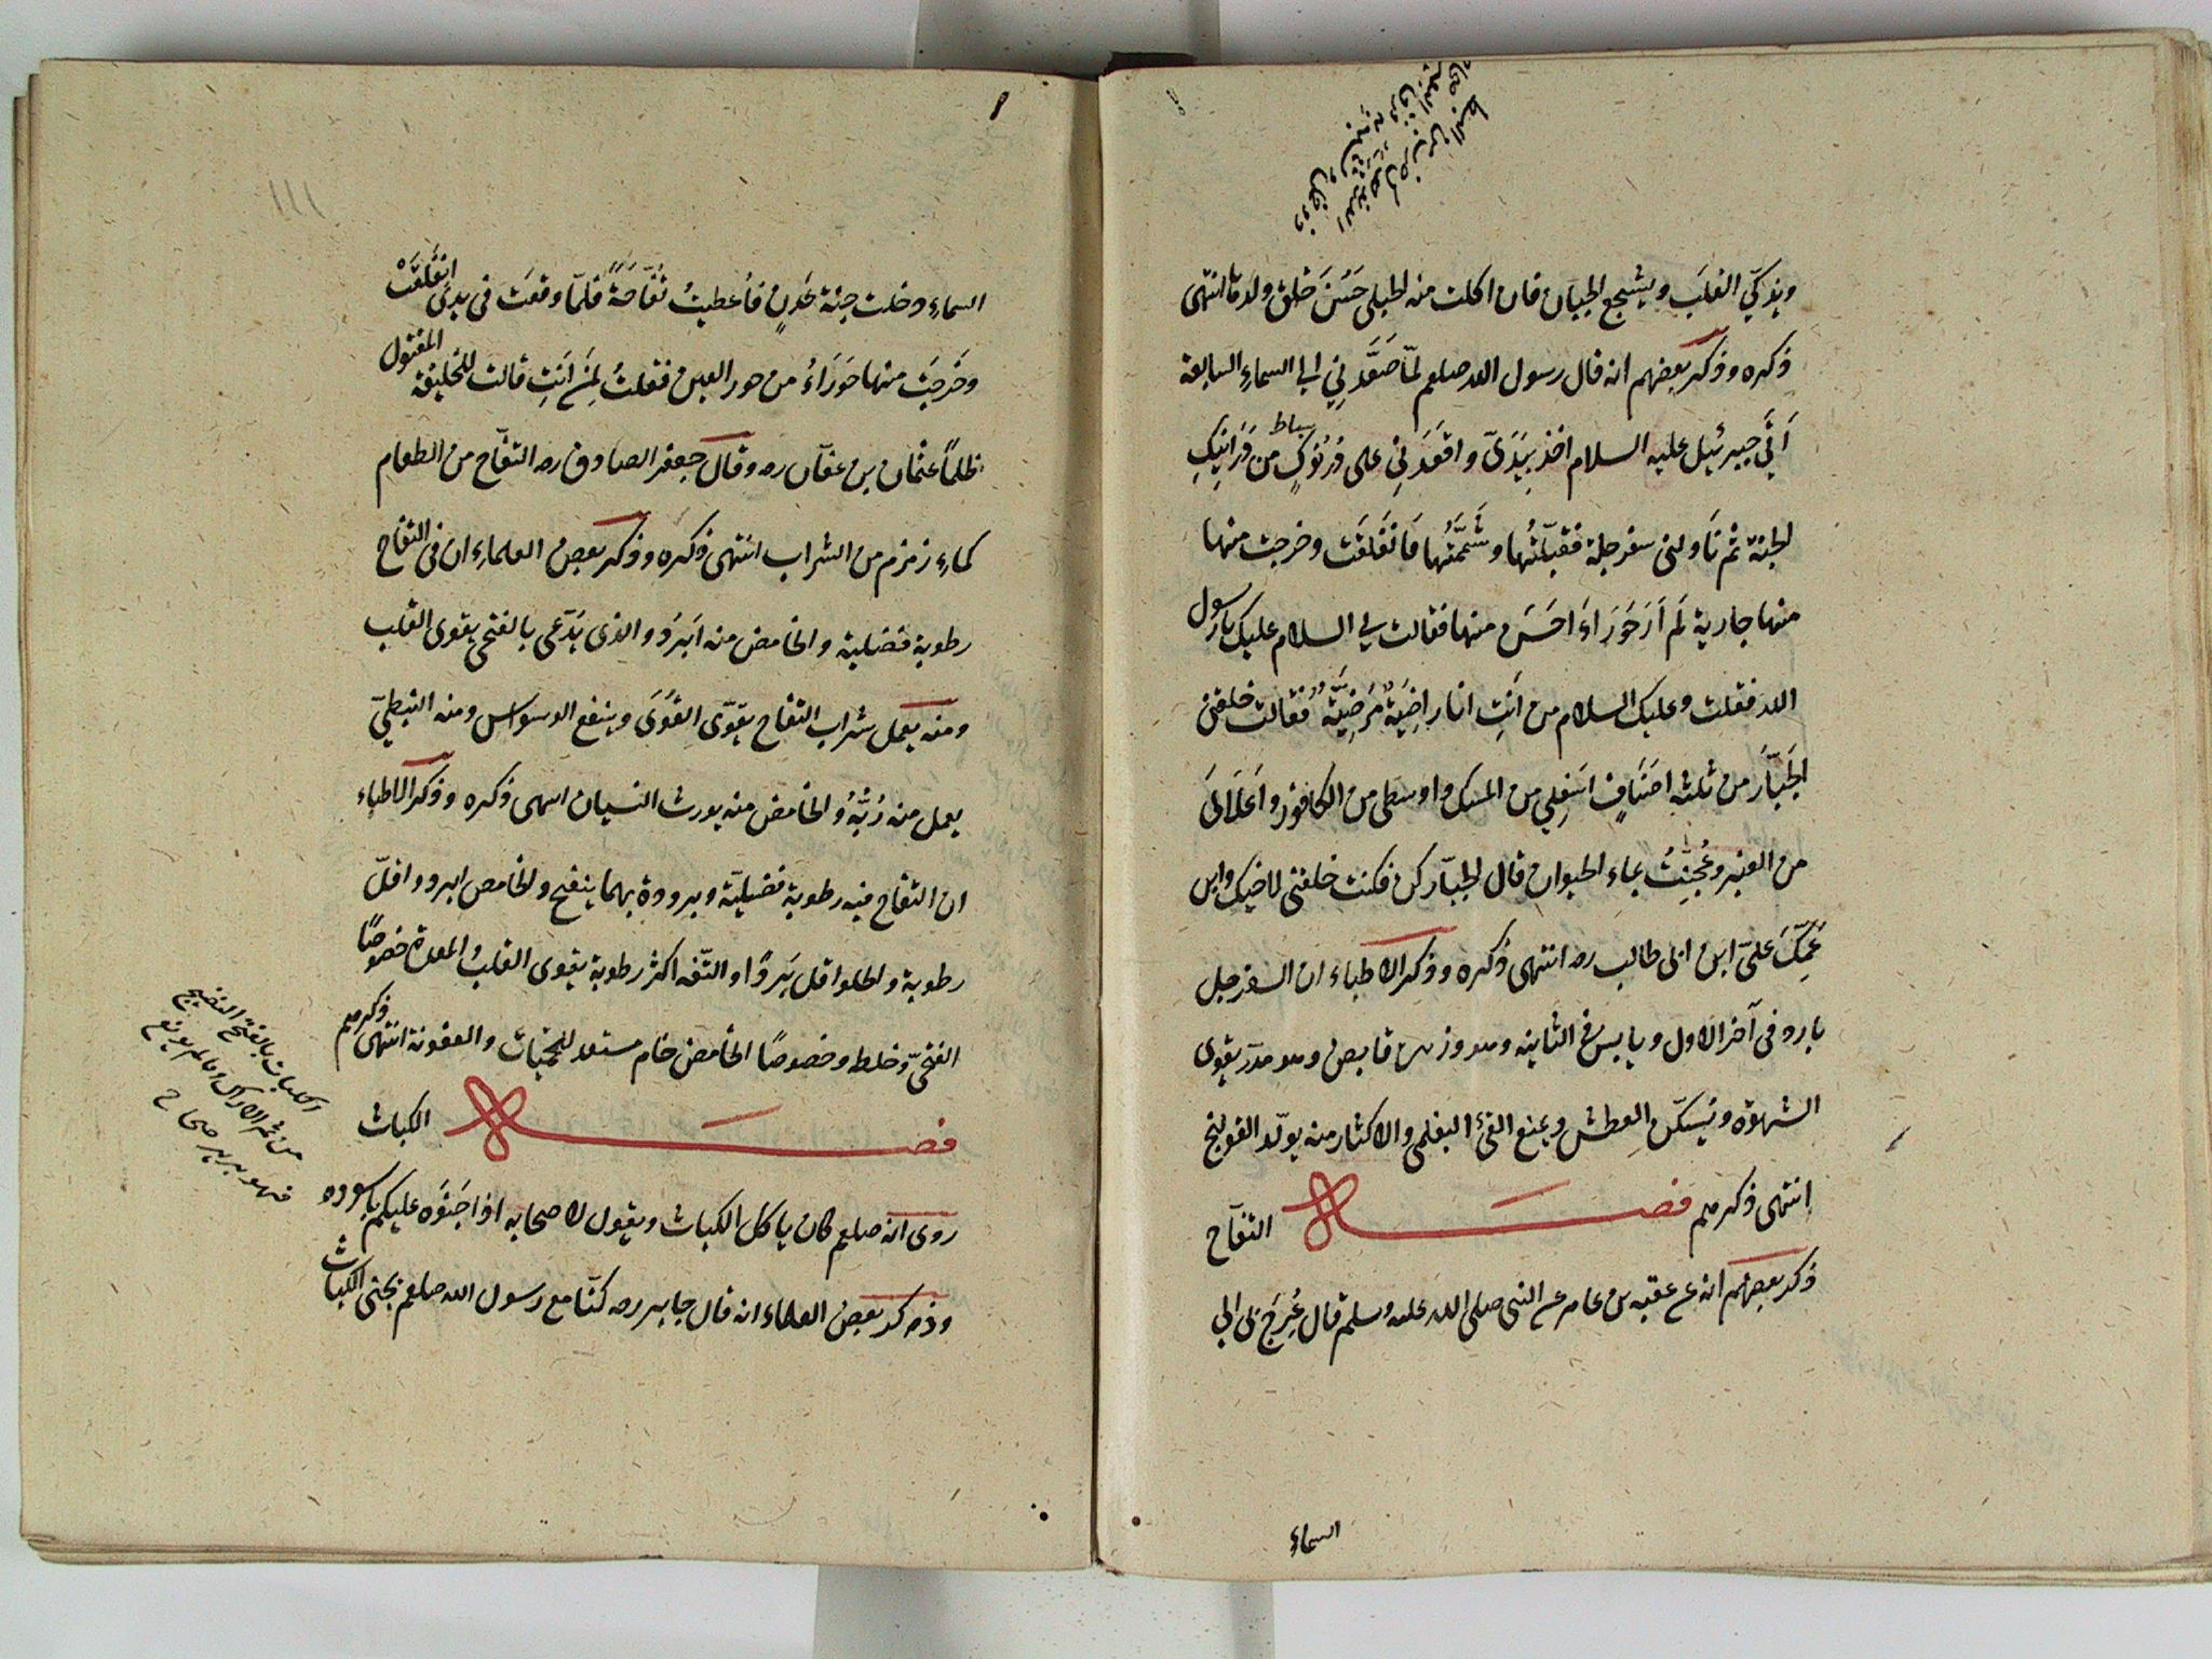 ويذكّي القلبَ ويشجع الجبان فان اكلت منه الحبلى حَسُنَ خلق ولدها انتهى
ذكره وذكر بعضهم انه قال رسول الله صلعم لمّا صَعَّدَنِي الى السماءِ السابعة
اَنِّي جبرئيل عليه السلام اخذ بِيَدَىّ واقعَدَنِي على دُرْنُوكٍ من دَرَانِيكِ
بساط
الجنة ثم نَاولنى سفرجلة فقبّلتُها وشَمَّتُها فَانفَلَقَت وخرجت منها
منها جارية لَم اَرَ حَورَاءَ احسَن منها فقالت لي السلام عليك يا رسول
الله فقلت وعليك السلام من اَنتِ انا راضِيَةٌ مَرضِيَّةٌ فقالت خلقنى
الجَبّارَ من ثلثه اصنَافٍ اسفلِي من المسك واوسطى من الكافور واَعلَائَى
من العنبر وعُجِنتُ بماء الحيوان قال الجبّار كن فكنت خلقنى لاخيك وابن
عَمِّكَ علىّ ابن ابى طالب رضه انتهى ذكره وذكر الاطباء ان السفرجل
بارد فى آخر الاول ويابس فى الثانيه وهو قابض وهو مدرّ يقوى
الشهوة ويُسكّن العطش ويمنع القئ البغلمى والاكثار منه يولّد القولنج
انتهى ذكرهم فصل التفّاح
ذكر بعضهم انه عن عقبه بن عامر عن النبى صلى الله عليه وسلم قال عُرِجَ بى الى
السماءِ
السماءِ دخلت جنة عَدنٍ فاُعطيتُ تُفّاحَةً فلمّا وقعَت فى يدىّ انفَلَقَتْ
وخَرجَت منها حَورَاءُ من حور العين فقلتُ لِمَن اَنتِ قالت للخليفة المقتول
ظلمًا عثمان بن عفّان رضه وقال جعفر الصادق رضه التفّاح من الطعام
كماءِ زمزم من الشراب انتهى ذكره وذكر بعض العلماءِ ان فى التفاح
رطوبة فضلية والحامض منه اَبرَدُ والذى يَدّعى بالفتحى يقوى القلب
ومنه يعمل شراب التفاح يقوّى القُوَى وينفع الوسواس ومنه النبطىّ
يعمل منه رُبُّهُ والحامض منه يورث النسيان انتهى ذكره وذكر الاطباء
ان التفاح فيه رطوبة فضيليّة وبرودة بهما ينفح والحامض ابرد واقلّ
رطوبة والحلو اقل بَردًا والتّفه اكثر رطوبة يقوى القلبُ المعدة خصوصًا
الفتحىّ وخلط وخصوصًا الحامض خام مستعد للحميات والعفونة انتهى ذكرهم
فصل الكباث
روى انه صلعم كان ياكل الكباث ويقول لاصحابه اذا اجتنوَه عليكم باسوده
وذكر بعض العلماء انه قال جابر رضه كنّا مع رسول الله صلعم نجتنى الكباث
الكباث بالفتح النضيج
من ثمر الاراك وما لم يونع
فهو برير صحاح